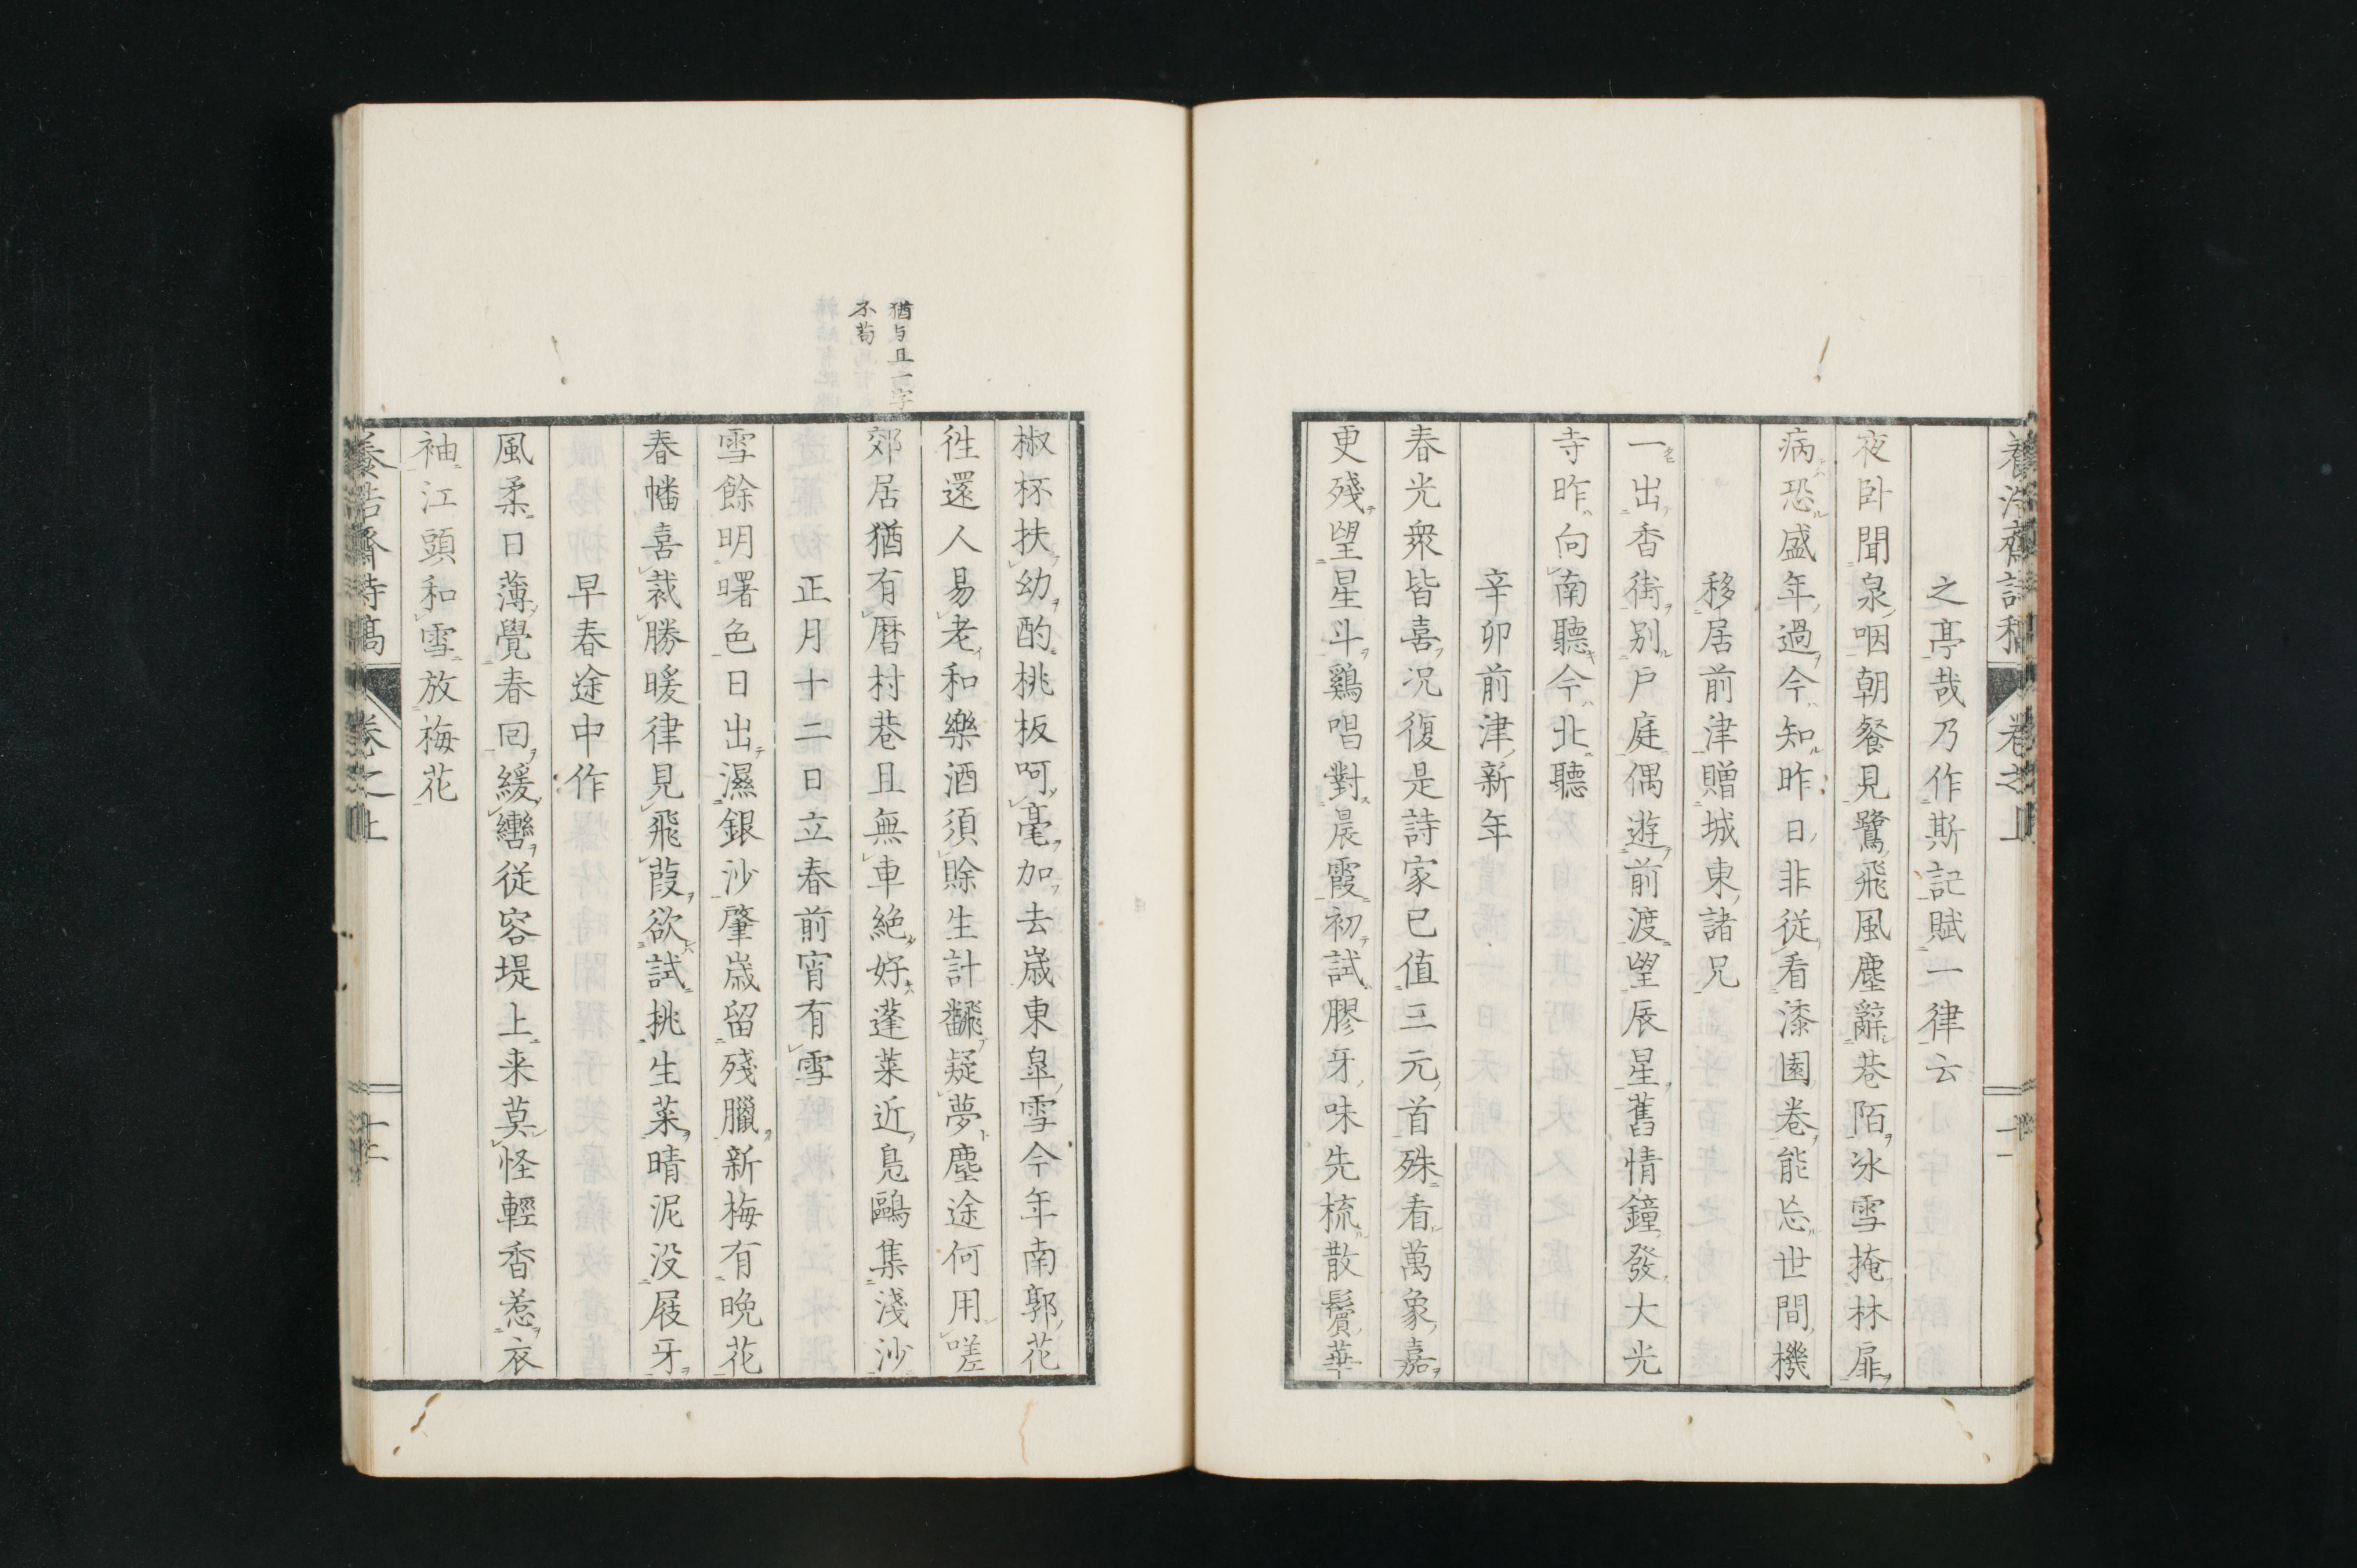 養浩齋詩稿 卷之上 十一
之亭哉乃作斯記賦一律云
夜卧聞泉咽朝餐見鷺飛風塵辭巷陌冰雪掩林扉
病恐盛年過今知昨日非従看漆園卷能忘世間機
移居前津贈城東諸兄
一出香街別戸庭偶遊前渡望辰星舊情鐘發大光
寺昨向南聽今北聽
辛卯前津新年
春光衆皆喜况復是詩家已值三元首殊看萬象嘉
更殘望星斗鷄唱對晨霞初試膠牙味先梳散鬢華
椒杯扶幼酌桃板呵毫加去歳東皐雪今年南郭花
徃還人易老和樂酒須賖生計翻疑夢塵途何用嗟
郊居猶有暦村巷且無車絶好蓬莱近鳧鷗集淺沙
猶与且一字
不苟
正月十二日立春前宵有雪
雪餘明曙色日出濕銀沙肇歳留殘臘新梅有晩花
春幡喜裁勝暖律見飛葭欲試挑生菜晴泥没屐牙
早春途中作
風柔日薄覺春回緩轡従容堤上来莫怪輕香惹衣
袖江頭和雪放梅花
養浩齋詩稿 卷之上 十二